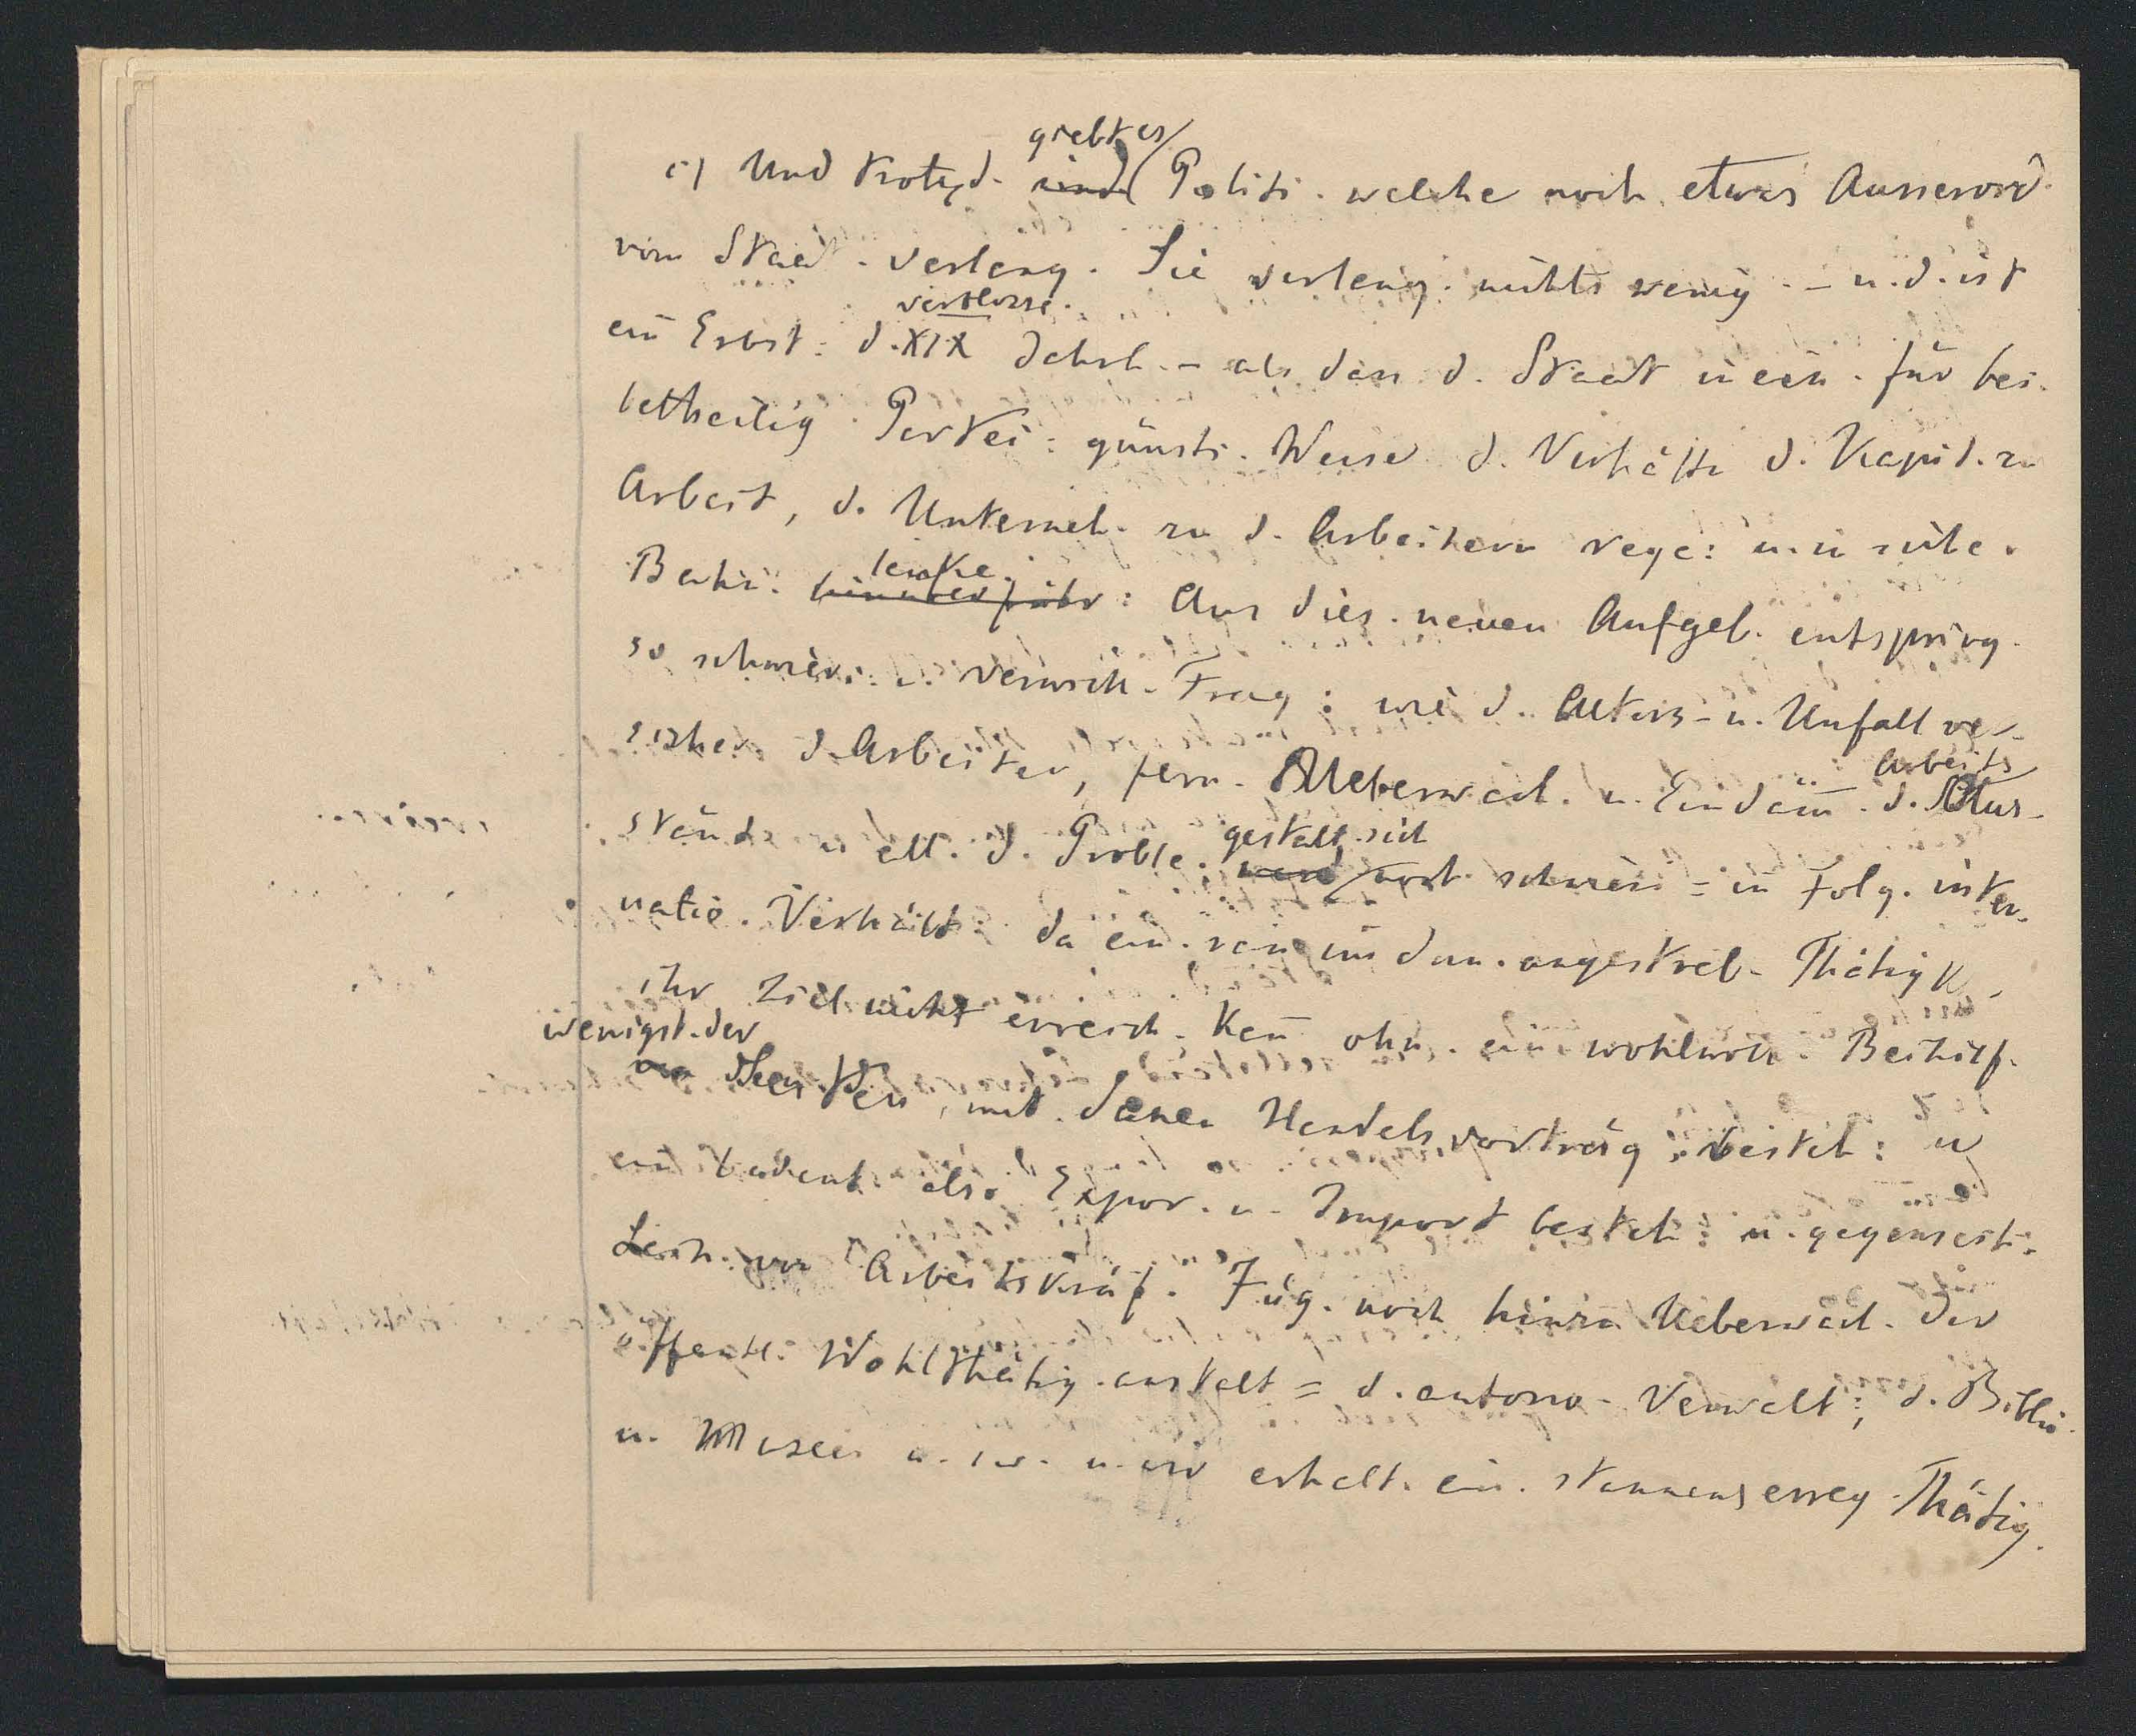 giebt es
c) Und trotzd. sind Politi. welche noch etwas Ausserord.
vom Staat. verlang. Sie verlang. nichts wenig. – u. d. ist
verflosse.
ein Erbst: d. XIX Jahrh. – als dass d. Staat in ein. für bei.
betheilig. Partei: günsti. Weise d. Verhältn d. Kapit. zu
Arbeit, d. Unterneh. zu d. Arbeitern rege: u. in
lenke.
Bahn. hinüberführ: Aus dies. neuen Aufgab. entspring.
so schwier. u. verwick. Frag: wie d. Alters- u. Unfallver-
Arbeits
sicher d. Arbeiter, fern. Ueberwach. u. Eindäm̄. d. Aus-
gestalt. sich
stände all. d. Proble. werd noch schwier = in Folg. inter-
natio. Verhält: da ein. angestreb. Thätigk.
ihr Ziel nicht erreich. kan̄ ohn. ein wohlwoll: Beihilf.
wenigst. der
Staaten, mit denen Handelsverträg. besteh: u
ein bedeut. also Expor. u. Import besteh: u. gegenseiti.
Leih. von Arbeitskräf. Füg. noch hinzu Ueberwach. der
öffentl. Wohlthätig. anstalt = d. autono. Verwalt:, d. Biblio.
u. Museen u. s. w. u. wir erhalt. ein. staunenserreg. Thätig.